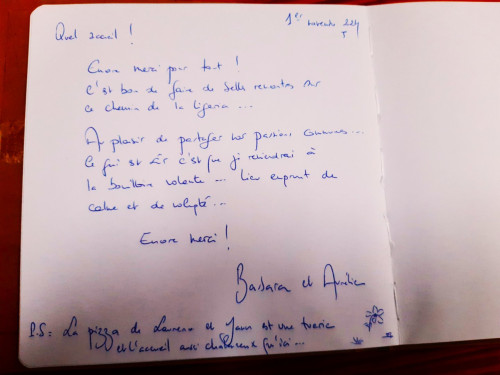 Quel accueil !
1er novembre
Encore merci pour tout !
C'est bon de faire de belles rencontres sur
ce chemin de la
Au plaisir de partager nos passions communes...
Ce qui est sûr c'est que je reviendrai à
la bouilloire volante... Lieu emprunt de
calme et de volupté...
Encore merci !
Barbara et Aurélien
P.S : La pizza de et Yann est une
et l'accueil aussi chaleureux qu'ici...